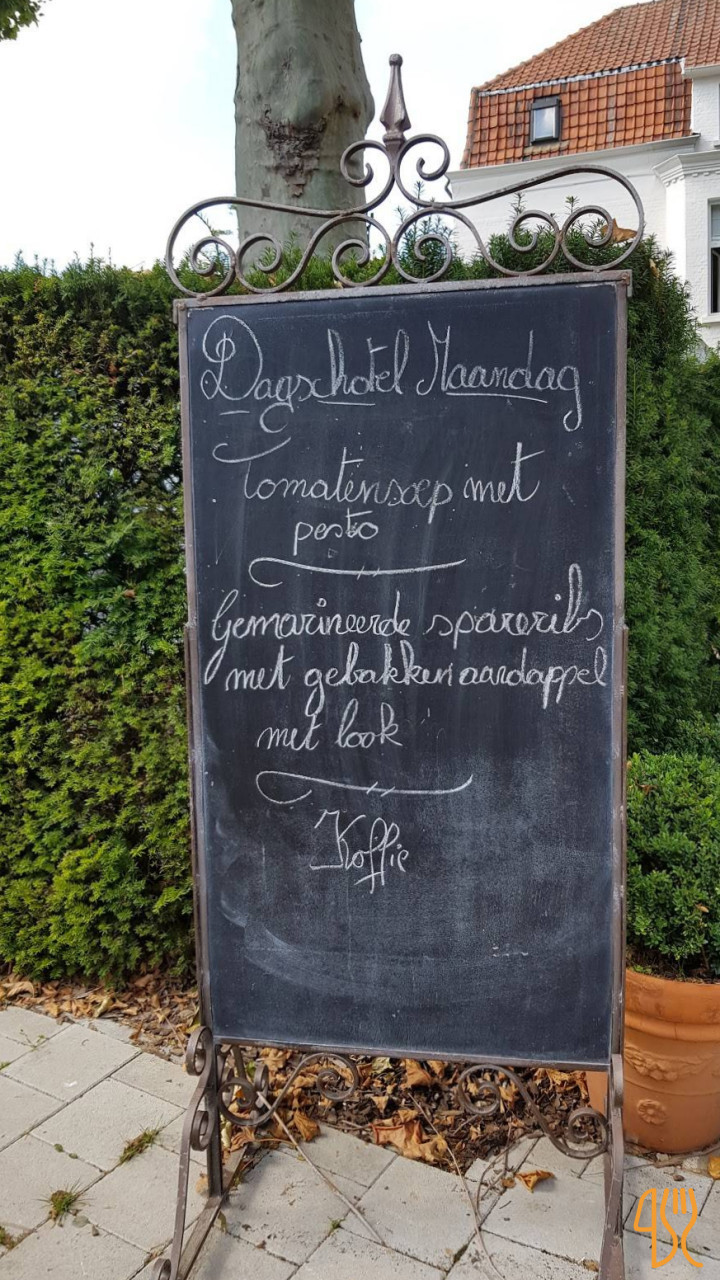 Dagschotel Maandag
Tomatensoep met
pesto
Gemarineerde spareribs
met gebakken aardappel
met look
Koffie